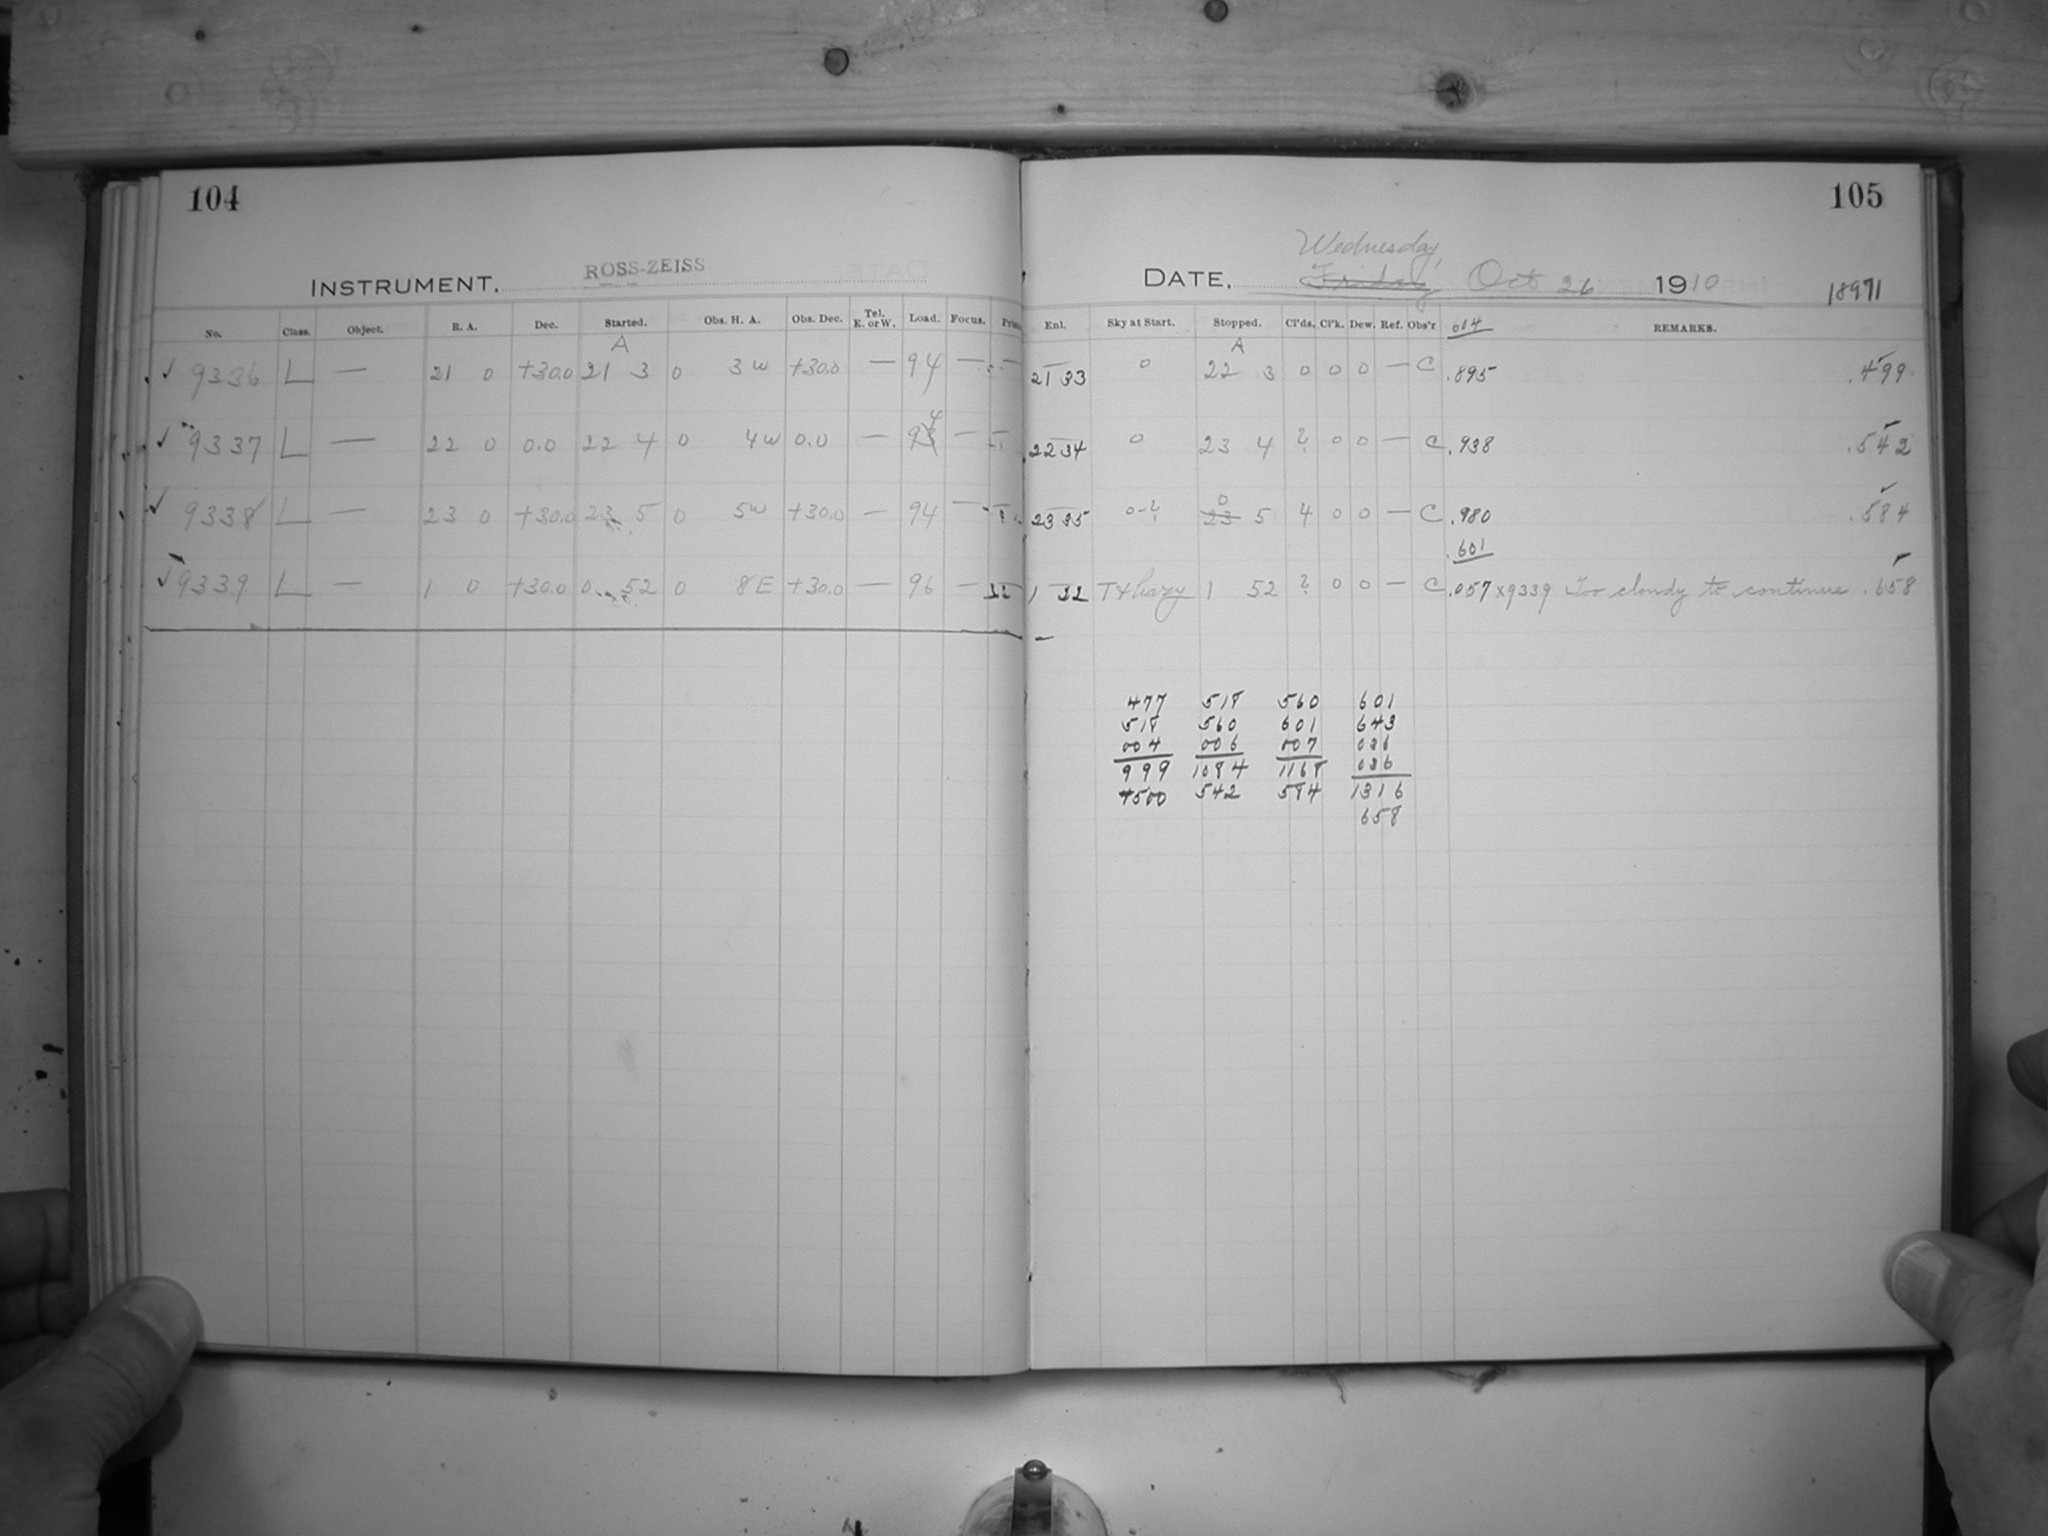 104
INSTRUMENT. ROSS-ZEISS
No. Class. Object. R. A. Dec. Started. Obs. H. A. Obs. Dec. Tel. E. or W. Load. Focus.
A
✓ 9336 L — 21 0 +30.0 21 3 0 3 w +30.0 — 94 —
✓ 9337 L — 22 0 0.0 22 4 0 4 w 0.0 — 94 —
✓ 9338 L — 23 0 +30.0 23 5 0 5 w +30.0 — 94 —
✓ 9339 L — 1 0 +30.0 0 52 0 8 E +30.0 — 96 —
105
Wednesday,
DATE. Friday Oct 26 1910 18971
Enl. Sky at Start. Stopped. Cl'ds. Cl'k. Dew. Ref. Obs'r .014 REMARKS.
A
21 33 0 22 3 0 0 0 — C .895 .499
22 34 0 23 4 ? 0 0 — C .938 .542
0
23 35 0-? 23 5 4 0 0 — C .980 .584
.601
1 22 T + hazy 1 52 ? 0 0 — C .057 x9339 Too cloudy to continue .658
477 518 560 601
518 560 601 643
004 006 007 036
999 1084 1168 036
500 542 584 1316
658